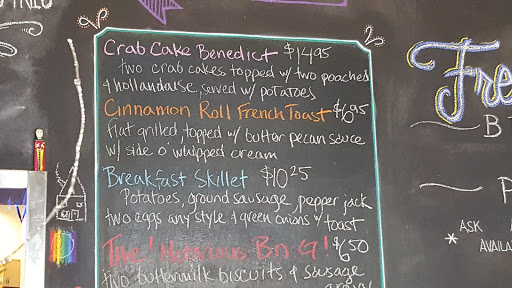 Crab Cake Benedict $14.95
two crab cakes topped w/ two poached
& hollandaise, served w/ potatoes
Cinnamon Roll French Toast $6.95
flat grilled, topped w/ butter pecan sauce
w/ side o' whipped cream
Breakfast Skillet $10.25
Potatoes, ground sausage, pepper jack
two eggs any style & green onions w/ toast
The! Notorious B n G! $6.50
two buttermilk biscuits & sausage
gravy
Fre
B
ASK
* AVAILA